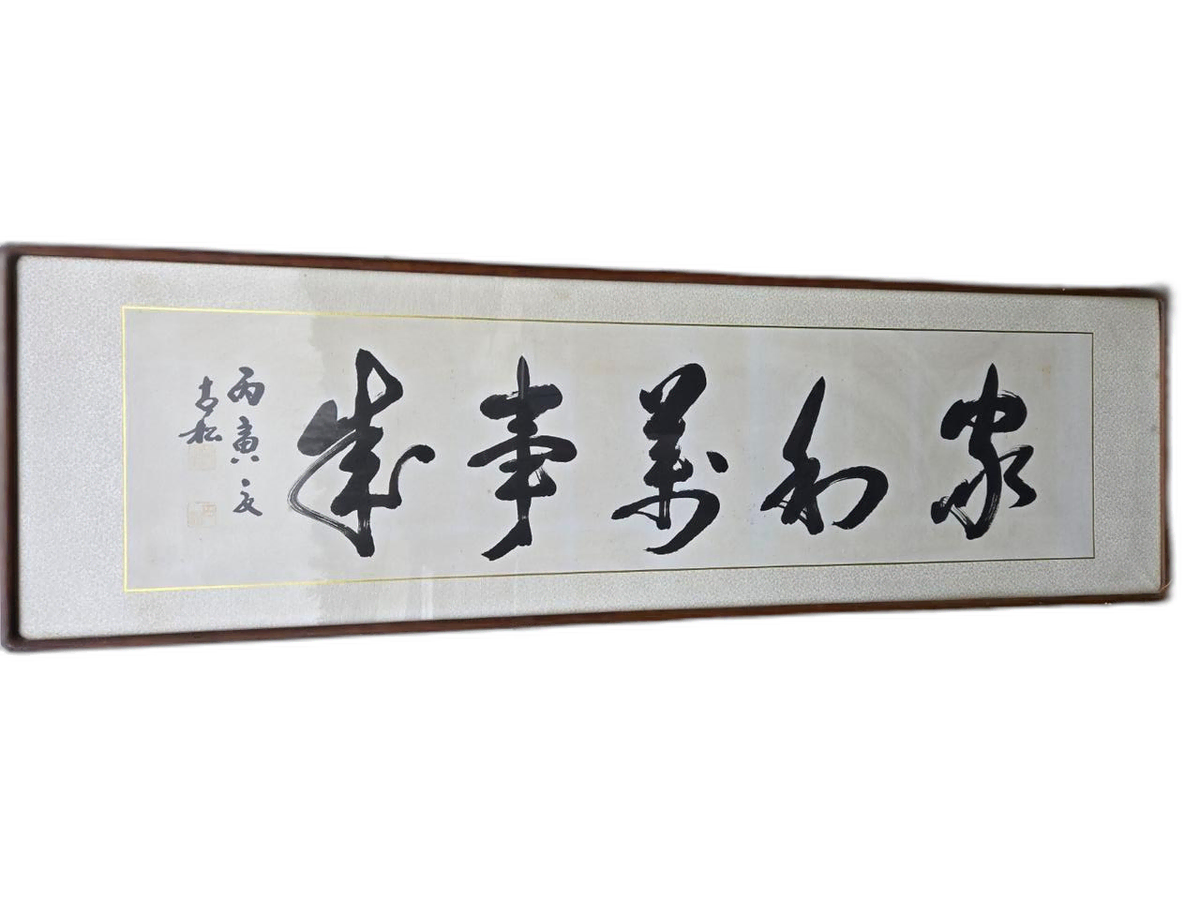 家和萬事成
丙寅夏
古松